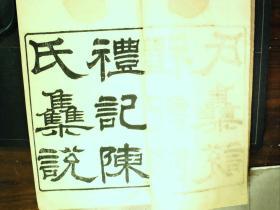 禮記陳
氏集說